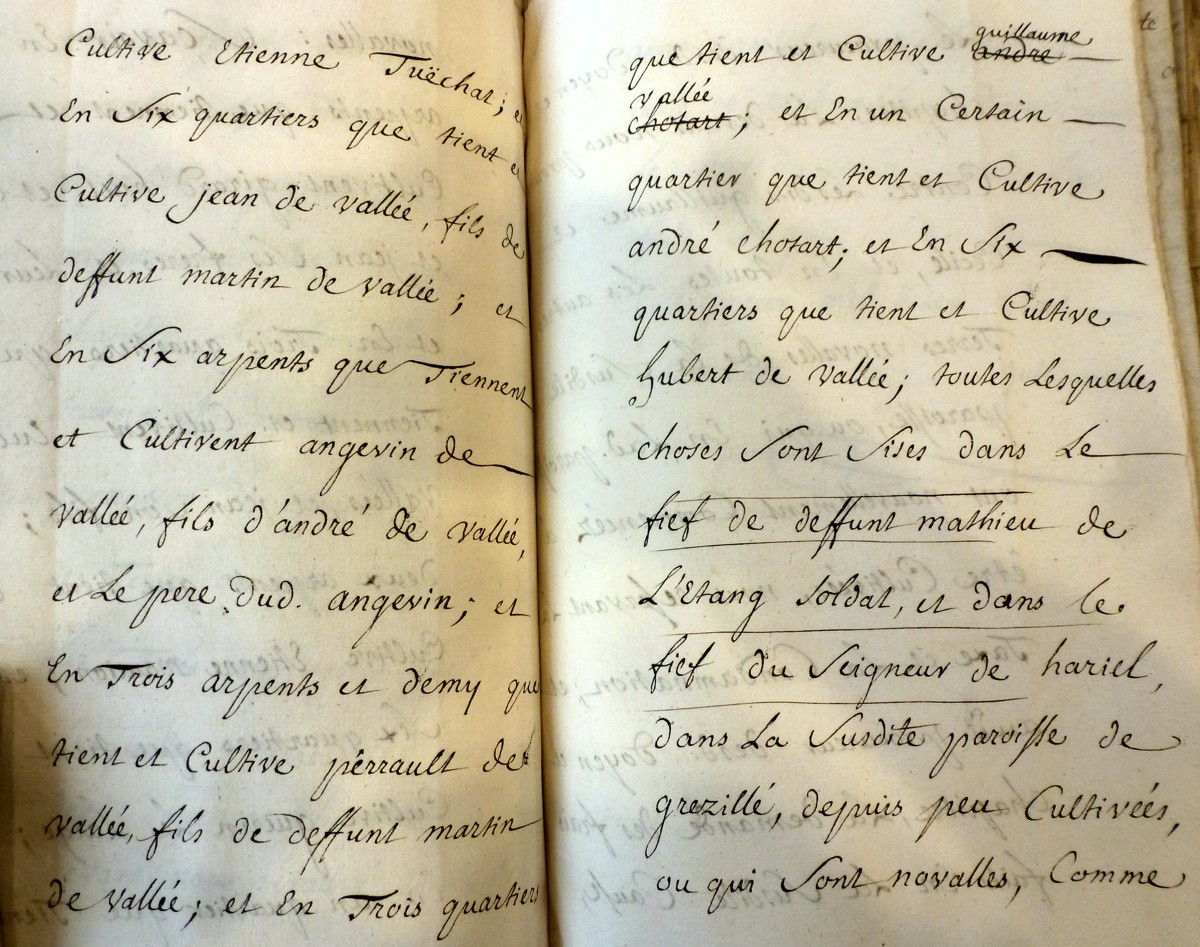 Cultive Etienne Tuëchat; et
En Six quartiers que tient et
Cultive jean de vallée, fils de
deffunt martin de vallée; et
En Six arpents que Tiennent
et Cultivent angevin de
vallée, fils d'andré de vallée,
et Le pere dud. angevin; et
En Trois arpents et demy que
tient et Cultive perrault de
vallée, fils de deffunt martin
de vallée; et En Trois quartiers
guillaume
que tient et Cultive andre
vallée
chotart; et En un Certain
quartier que tient et Cultive
andré chotart; et En Six
quartiers que tient et Cultive
hubert de vallée; toutes Lesquelles
choses Sont Sises dans Le
fief de deffunt mathieu de
L'Etang Soldat, et dans le
fief du Seigneur de hariel,
dans La Susdite paroisse de
grezillé, depuis peu Cultivéés,
ou qui Sont novalles, Comme